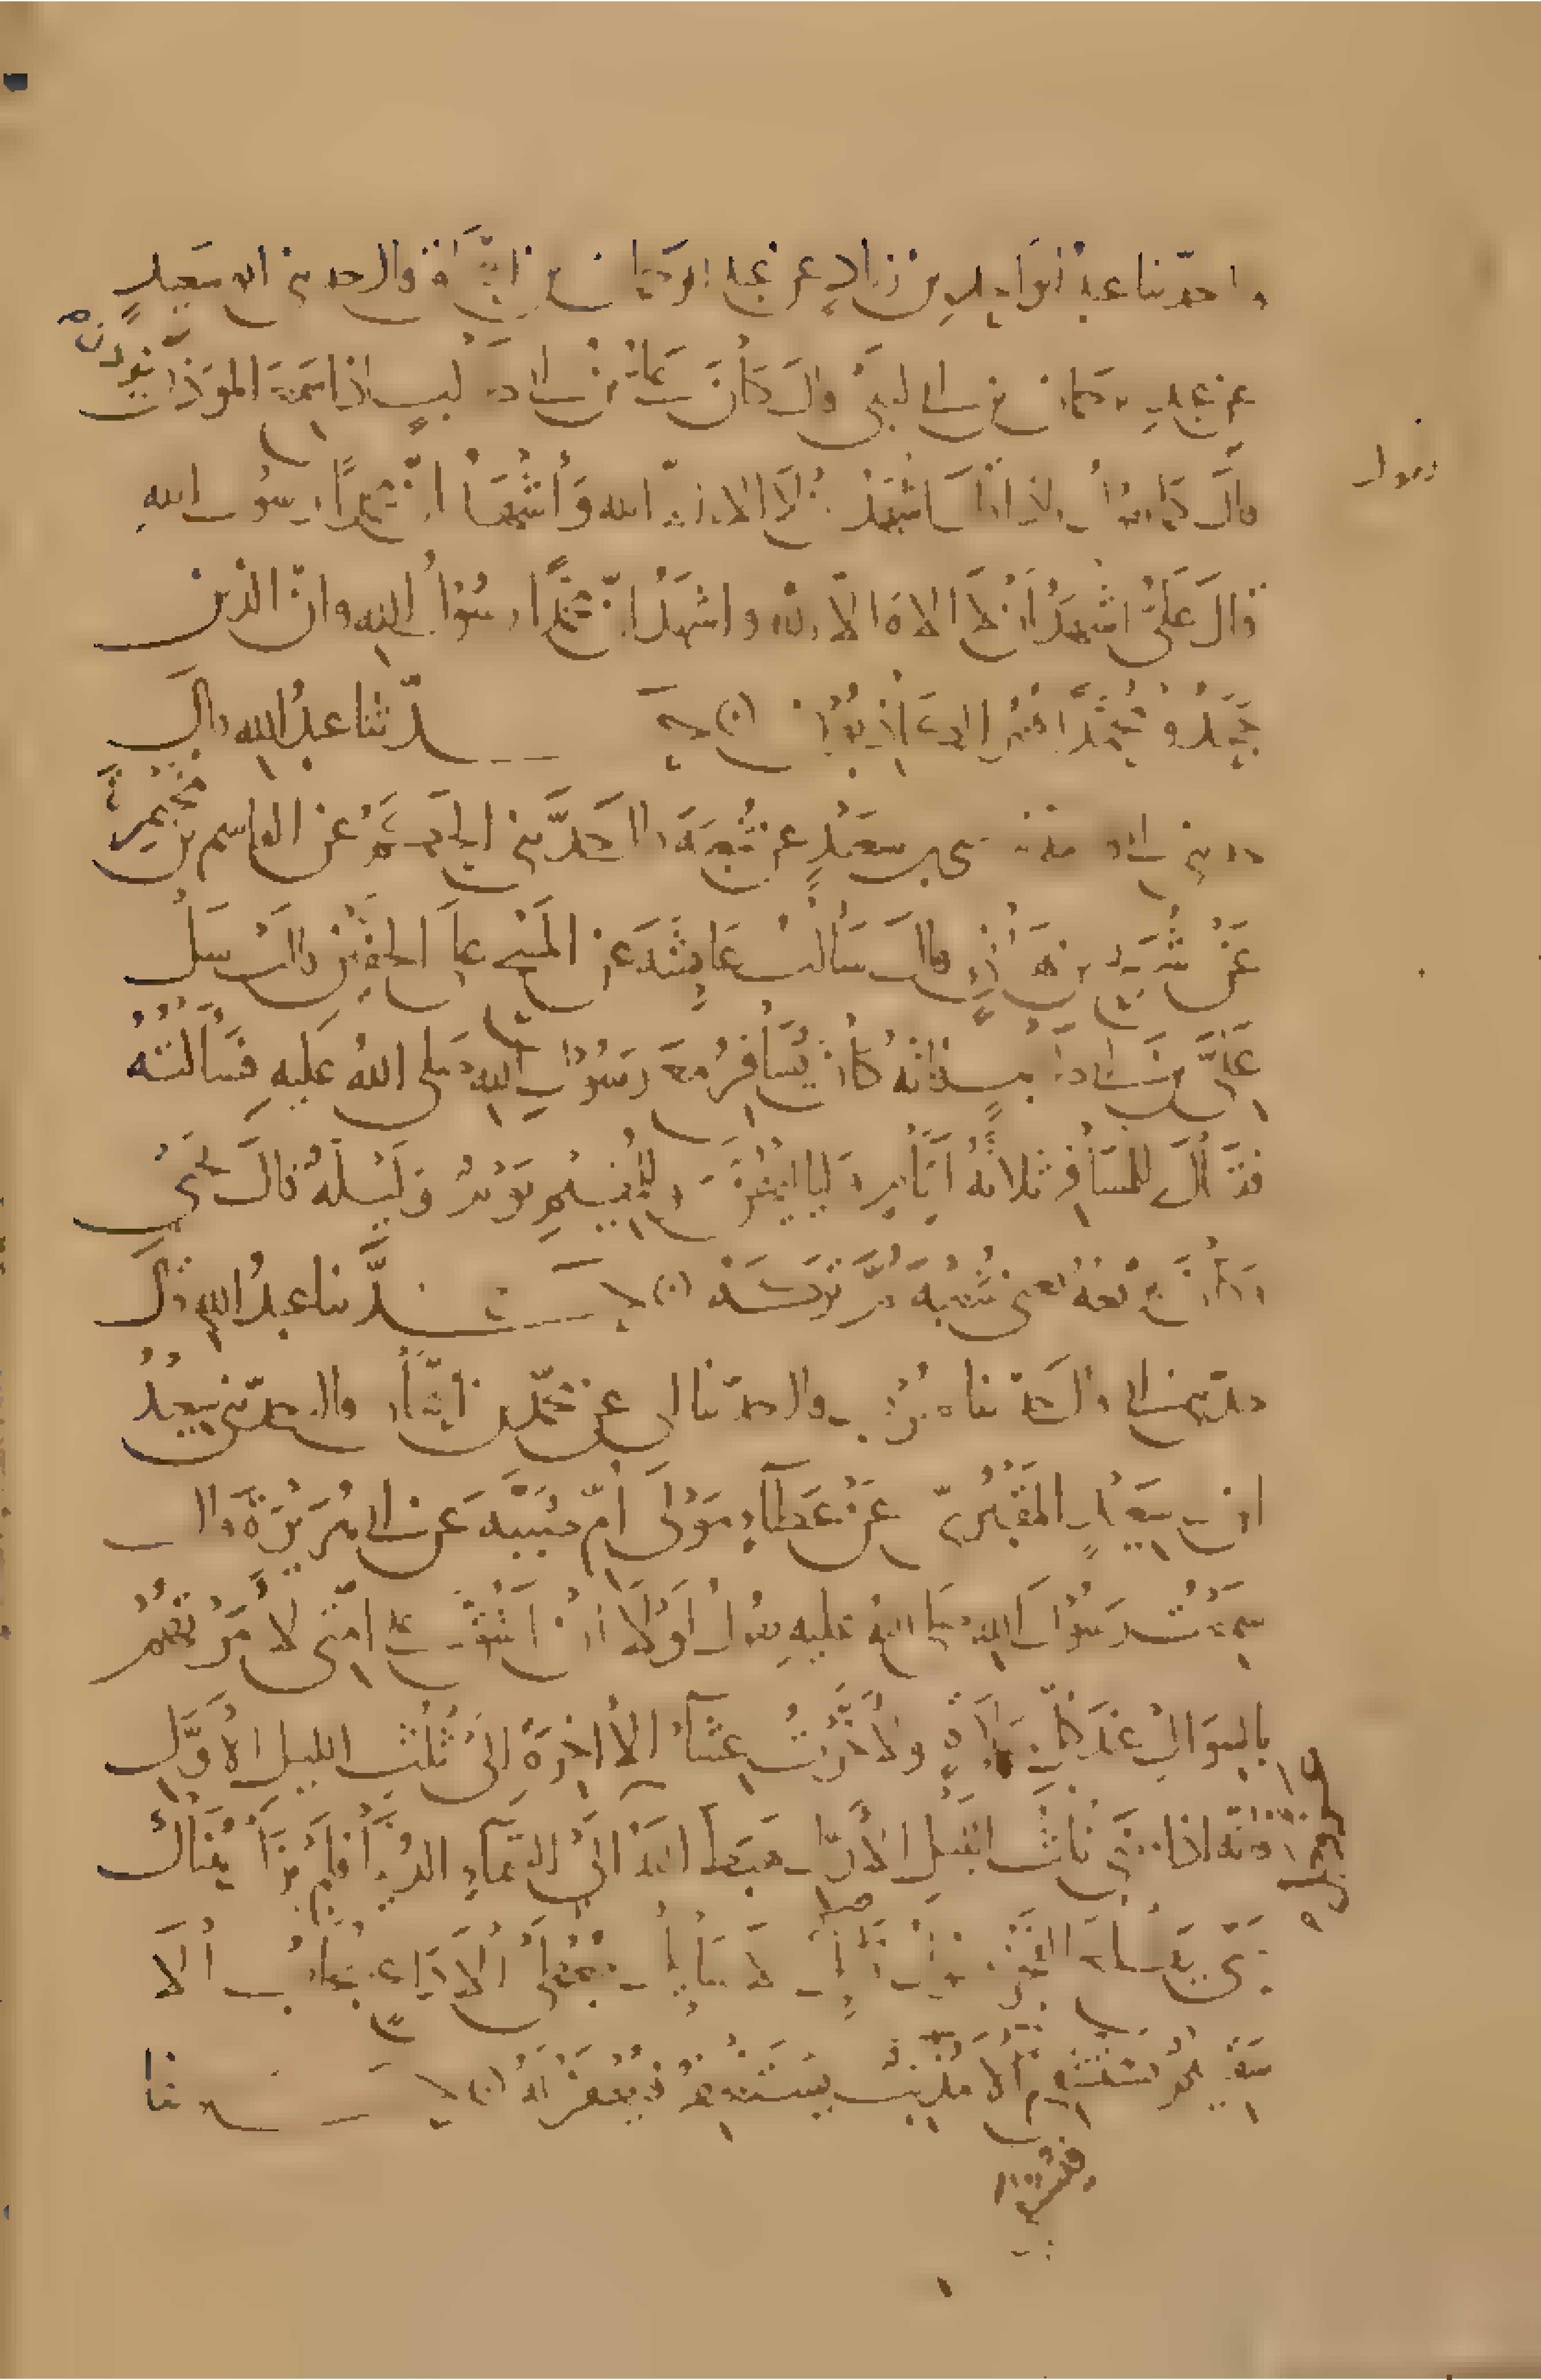 حدثنا عبد الواحد بن زياد عن عبد الرحمن بن إسحاق قال حدثني ابو سعيدٍ
عن عبد الرحمان بن ابي ليلى قال كان علي بن ابي طالب اذا سمع الموذن يؤذن
قال كما يقول فاذا قال اشهد ان لا الاه الا الله واشهد ان محمدًا رسول الله
قال عليّ اشهد ان لا الاه الا الله واشهد انّ محمدًا رسول الله وانّ الذين
جحدوا محمدًا هم الكاذبون حدّثنا عبد الله قال
حدثني ابي حدثنا يحيى بن سعيدٍ عن شعبة قال حدّثني الحكم عن القاسم بن مخيمرة
عن شريح بن هانئ قال سالت عايشة عن المسح على الخفين قالت سل
عليّ بن ابي طالب فانه كان يسافر مع رسول الله صلى الله عليه فسالته
فقال للمسافر ثلاثة ايام ولياليهن وللمقيم يوم وليلة قال يحيى
وكان يرفعه يعني شعبة ثمّ تركه حدّثنا عبد الله قال
حدثني ابي قال حدثنا يعقوب قال حدثنا ابي عن محمد بن اسحاق قال حدثني سعيد
ابن ابي سعيدٍ المقبريّ عن عطاءٍ مولى امّ صبيّة عن ابي هريرة قال
سمعت رسول الله صلى الله عليه يقول لولا ان اشق على امتي لامرتهم
بالسواك عند كل صلاةٍ ولاخّرت عشاء الاخرة الى ثلث الليل الاوّل
فانه اذا مضى ثلث الليل الاول هبط الله الى السماء الدنيا فلم يزل هناك
عز وجل
حتى يطلع الفجر يقول قايل الا سايل يعطى الا داعٍ يجاب الا
سقيم يستشفي فيشفى الا مذنب يستغفر فيغفر له حدثنا